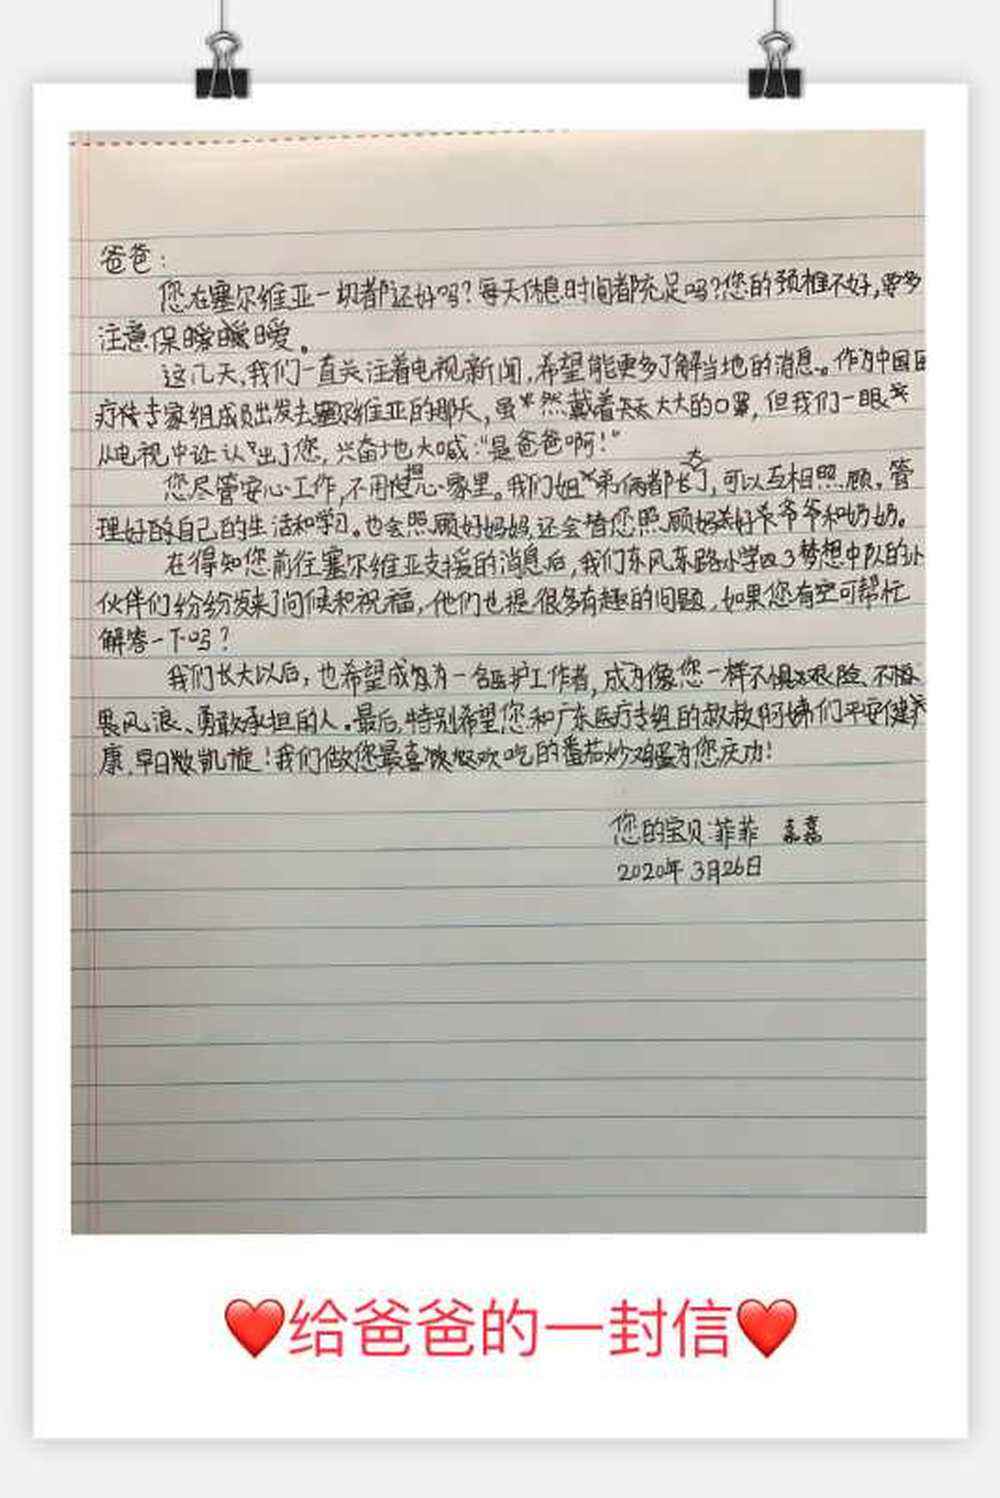 爸爸：
您在塞尔维亚一切都还好吗？每天休息时间都充足吗？您的颈椎不好，要多
注意保暖暖暖。
这几天，我们一直关注着电视新闻，希望能更多了解当地的消息。作为中国医
疗专家组成员出发去塞尔维亚的那天，虽然戴着大大的口罩，但我们一眼
从电视中认出了您，兴奋地大喊：“是爸爸啊！”
您尽管安心工作，不用担心家里。我们姐弟俩都长大了，可以互相照顾。管
理好自己的生活和学习。也会照顾好妈妈，还会替您照顾好爷爷和奶奶。
在得知您前往塞尔维亚支援的消息后，我们东风东路小学四3梦想中队的小
伙伴们纷纷发来了问候和祝福，他们也提很多有趣的问题，如果您有空可帮忙
解答一下吗？
我们长大以后，也希望成为一名医护工作者，成为像您一样不惧艰险、不惧
畏风浪、勇敢承担的人。最后，特别希望您和广东医疗专组的叔叔阿姨们平安健
康，早日凯旋！我们做您最喜欢吃的番茄炒鸡蛋为您庆功！
您的宝贝：菲菲 嘉嘉
2020年3月26日
❤️给爸爸的一封信❤️